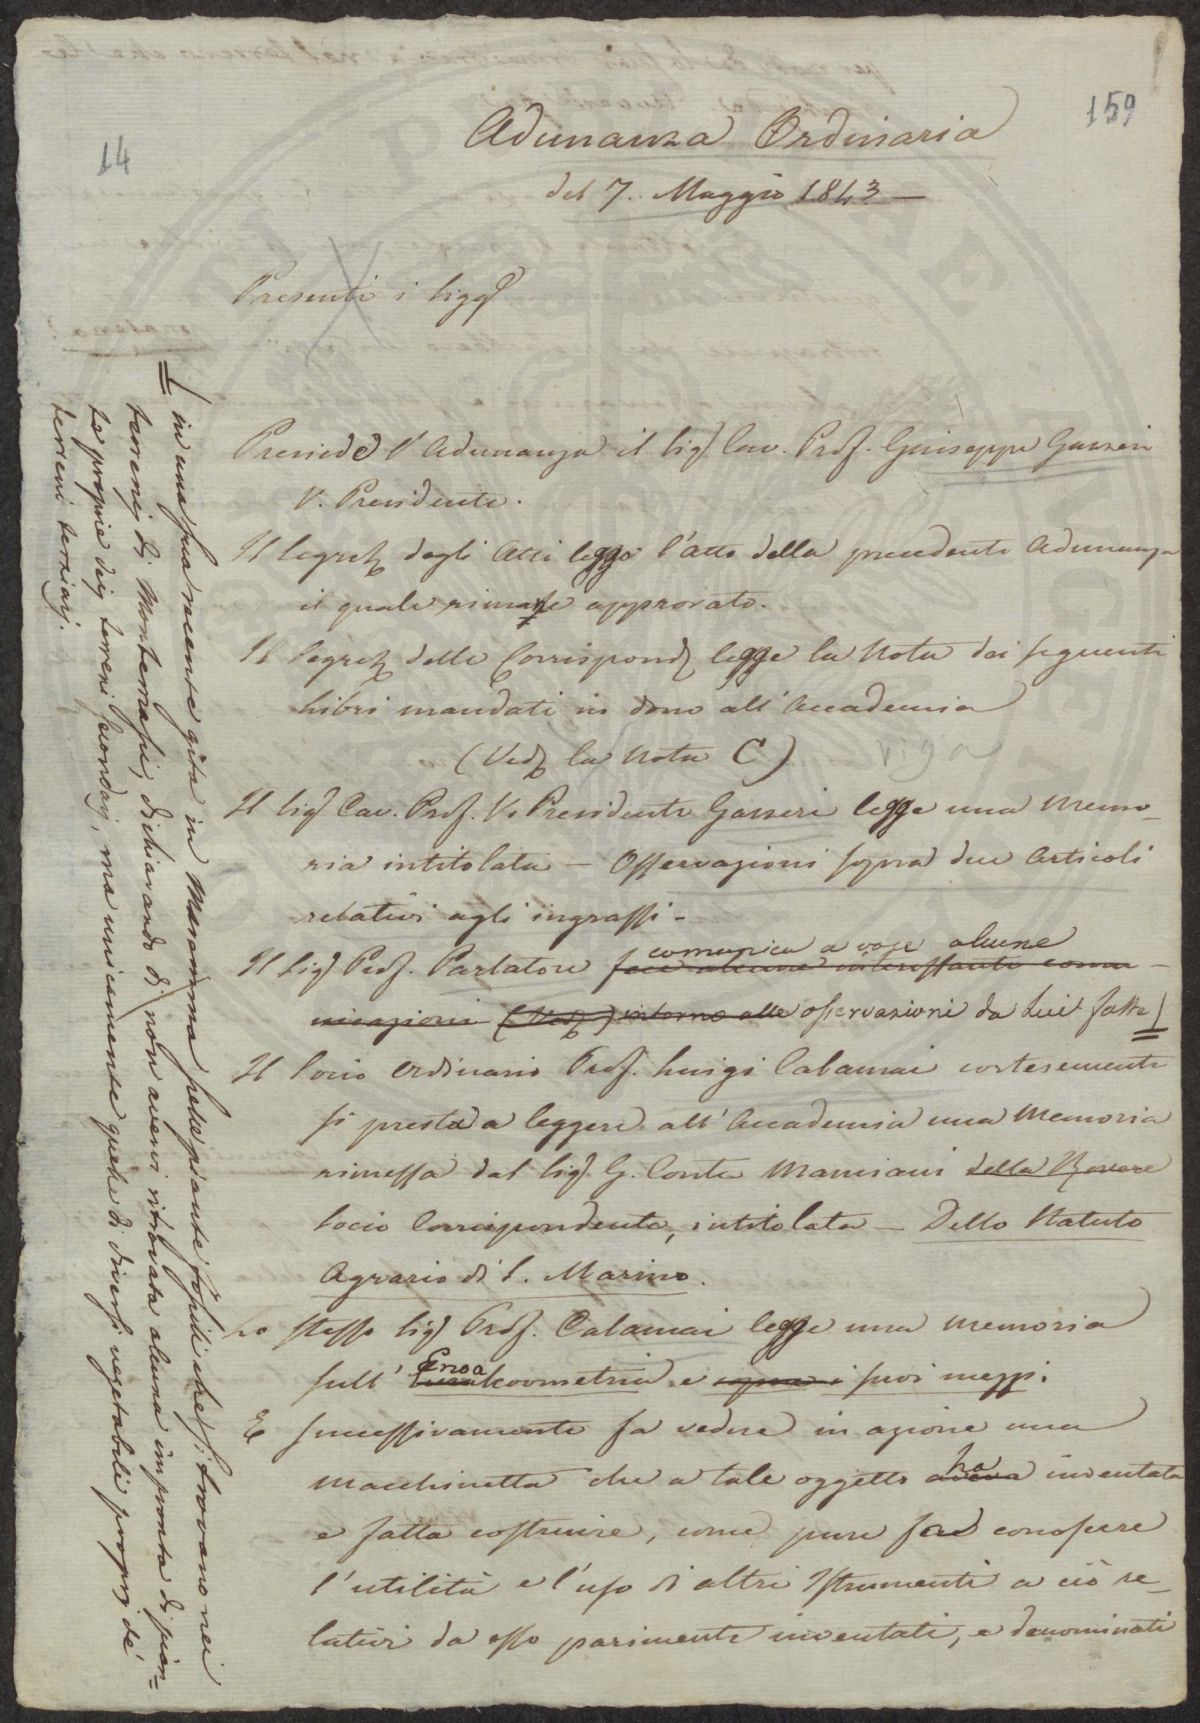 159
14
Adunanza Ordinaria
del 7. Maggio 1843 —
Presenti i Sigg.
Presiede l'Adunanza il Sig. Cav. Prof. Giuseppe Gazzeri
V. Presidente.
Il Segret. degli Atti legge l'atto della precedente Adunanza
il quale rimane approvato.
Il Segret. delle Corrispond. legge la Nota dei seguenti
Libri mandati in dono all'Accademia
(Ved. la Nota C)
Il Sig. Cav. Prof. V. Presidente Gazzeri legge una Memo-
ria intitolata — Osservazioni sopra due Articoli
relativi agli ingrassi -
comunica a voce alcune
Il Sig. Prof. Parlatore fece alcune interessanti comu-
nicazioni (Ved. ) intorno alle osservazioni da Lui fatte
Il Socio Ordinario Prof. Luigi Calamai cortesemente
si presta a leggere all'Accademia una Memoria
rimessa dal Sig. G. Conte Mamiani della Rovere
Socio Corrispondente, intitolata — Dello Statuto
Agrario di S. Marino.
Lo stesso Sig. Prof. Calamai legge una Memoria
sull' koometria e sopra i suoi mezzi.
E successivamente fa vedere in azione una
ha
macchinetta che a tale oggetto aveva inventata
e fatta costruire, come pure fa conoscere
l'utilità e l'uso di altri Istrumenti a ciò re-
lativi da esso parimente inventati, e denominati
in una sua recente gita in Maremma sulle piante fossili che si trovano nei
terreni di Montemassi, dichiarando di non avervi ritrovata alcuna impronta di pian=
te proprie dei terreni secondarj, ma unicamente quelle di diversi vegetabili proprj de'
terreni terziarj.